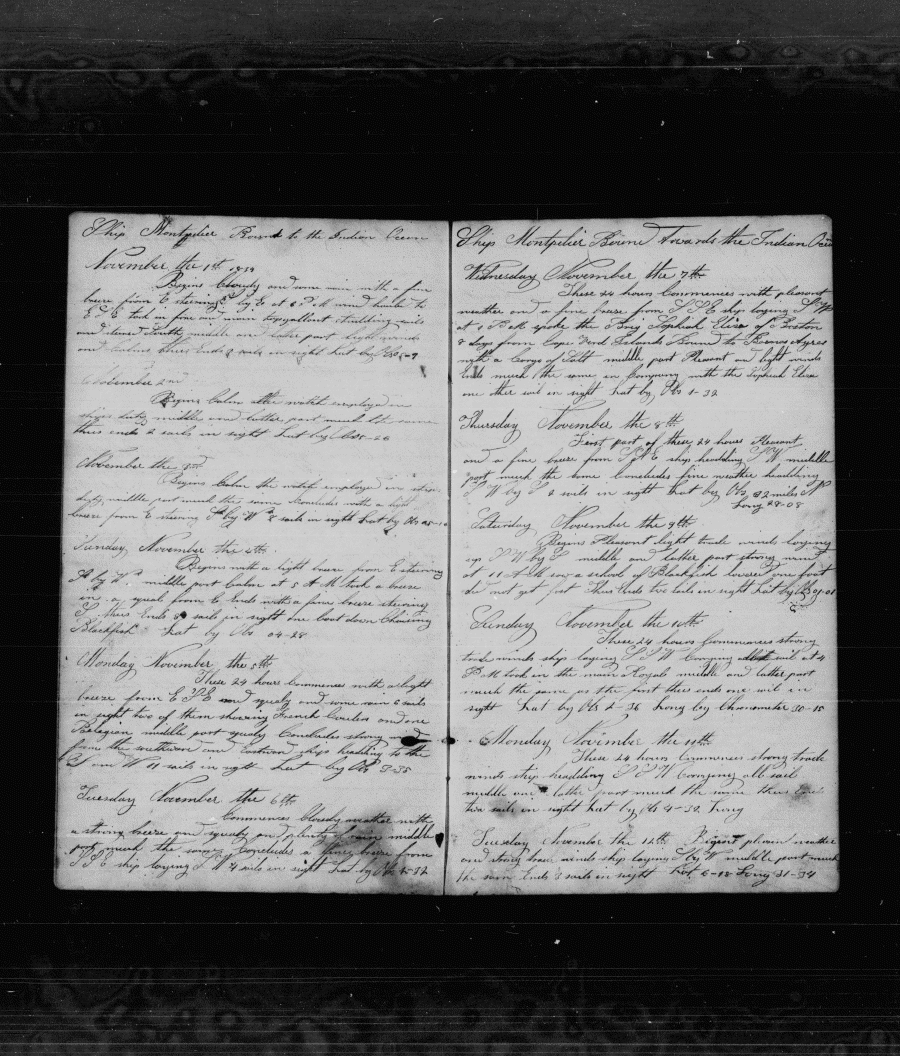 Ship Montpelier Bound to the Indian Ocean
November the 1st
Begins Cloudy and some rain with a fine
breeze from E steering S by E at 6 P M wind hauls to
E S E took in fore and main topgallant studding sails
and steered South middle and later part light winds
and Calms thus Ends 2 sails in sight Lat by Obs 5-7
November 2nd
Begins Calm all the watch employed in
ships duty middle and latter part much the same
thus ends 2 sails in sight Lat by Obs 5-26
November the 3rd
Begins Calm the watch employed in ships
duty middle part much the same Concludes with a light
breeze from E steering S by W 2 sails in sight Lat by Obs
Sunday November the 4th
Begins with a light breeze from E steering
S by W middle part Calm at 5 A M took a breeze
in a squal from E Ends with a fine breeze steering
S thus Ends sails in sight one boat down Chasing
Blackfish Lat by Obs 04-28
Monday November the 5th
These 24 hours Commences with a light
breeze from E S E and squaly and some rain 6 sails
in sight two of them showing French Coulers and one
Belegian middle part squaly Concludes strong wind
from the southward and Eastward ships heading to the
S and W 11 sails in sight Lat by Obs 3-35
Tuesday November the 6th
Commences Cloudy weather with
a strong breeze and squaly and plenty of rain middle
part much the same Concludes a fine breeze from
S S E ship laying S W 4 sails in sight Lat by Obs 2-32
Ship Montpelier Bound Towards the Indian Ocean
Wednesday November the 7th
These 24 hours Commences with pleasant
weather and a fine breeze from S S E ship laying S W
at 1 P M spoke the Brig Sophiah Eliza of Boston
8 days from Cape Verd Islands Bound to Buenos Ayres
with a Cargo of Salt middle part Plesent and light winds
Ends much the same in Company with the Sophiah Eliza
one other sail in sight Lat by Obs 1-32
Thursday November the 8th
First part of these 24 hours Plesant
and a fine breeze from S S E ship heading S W middle
part much the same Concludes fine weather headding
S W by S 2 sails in sight Lat by Obs 32 miles N
Long 28-08
Saturday November the 9th
Begins Pleasant light trade winds laying
up S W by S middle and latter part strong wind
at 11 A M saw a school of Blackfish lowered one boat
did not get fast Thus Ends two sails in sight Lat by Obs 01-01
S
Sunday November the 10th
These 24 hours Commences strong
trade winds ship laying S S W Carrying all sail at 4
P M took in the main Royal middle and latter part
much the same as the first thus ends one sail in
sight Lat by Obs 2-36 Long by Chronometer 30-15
Monday November the 11th
These 24 hours Commences strong trade
winds ship headding S S W Carrying all sail
middle and latter part much the same thus Ends
two sails in sight Lat by Obs 4-32 Long
Tuesday November the 12th Begins plesent weather
and strong trade winds ship laying S by W middle part much
the same Ends 3 sails in sight Lat 6-18 Long 31-34